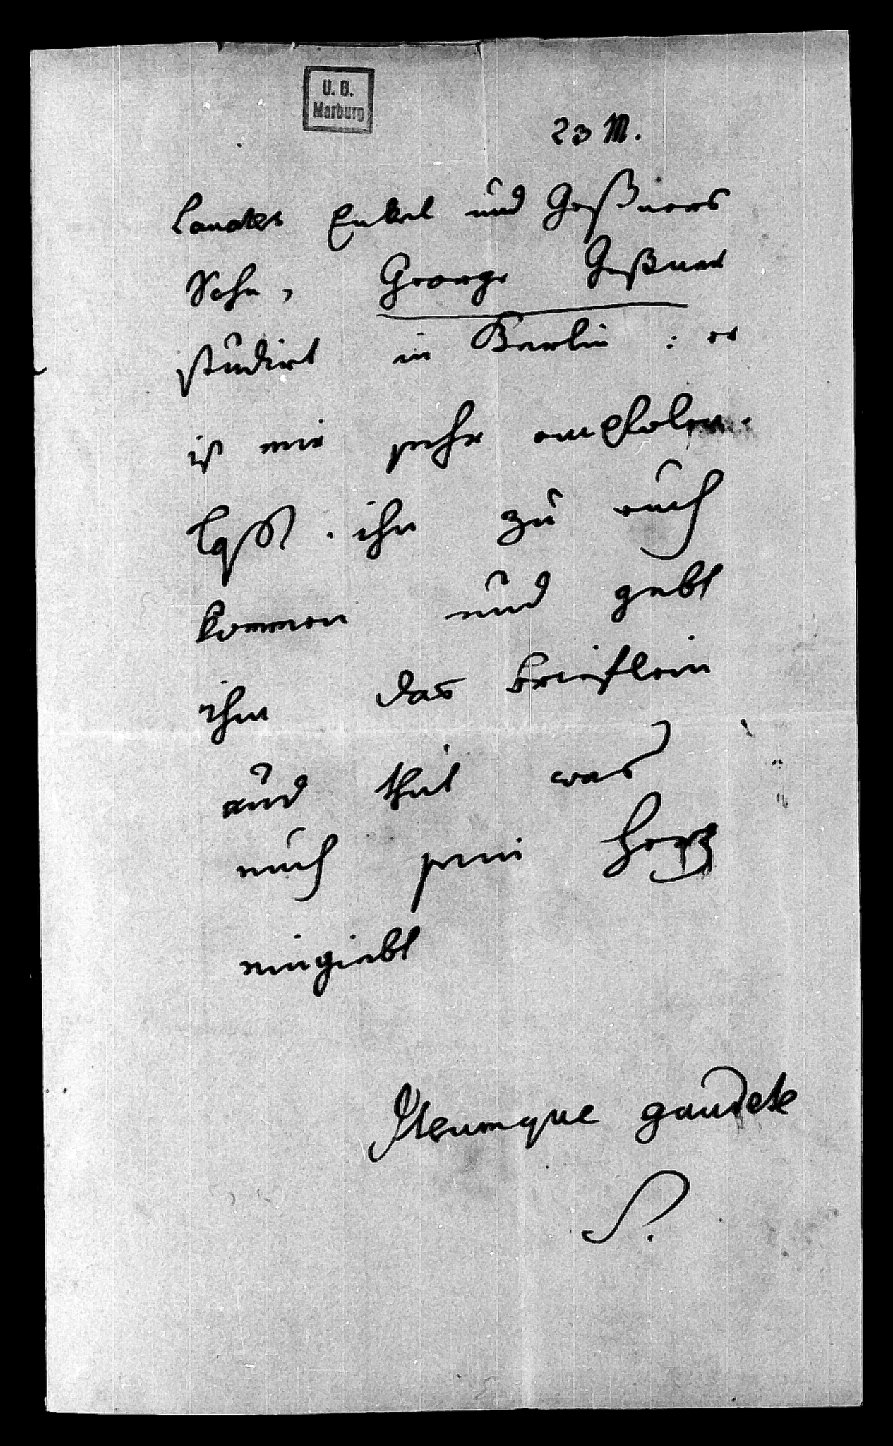 U. B.
Marburg
23 M.
Lavaters Enkel und Geßners
Sohn, George Geßner
studirt in Berlin : er
ist mir sehr empholen.
Laßt ihn zu euch
kommen und gebt
ihm das brieflein
und thut was
euch sein Herz
eingiebt
Iterumque gaudete
S.